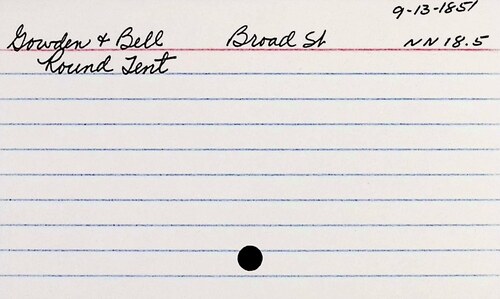 9-13-1851
Gowden & Bell Broad St NN 18.5
Round Tent